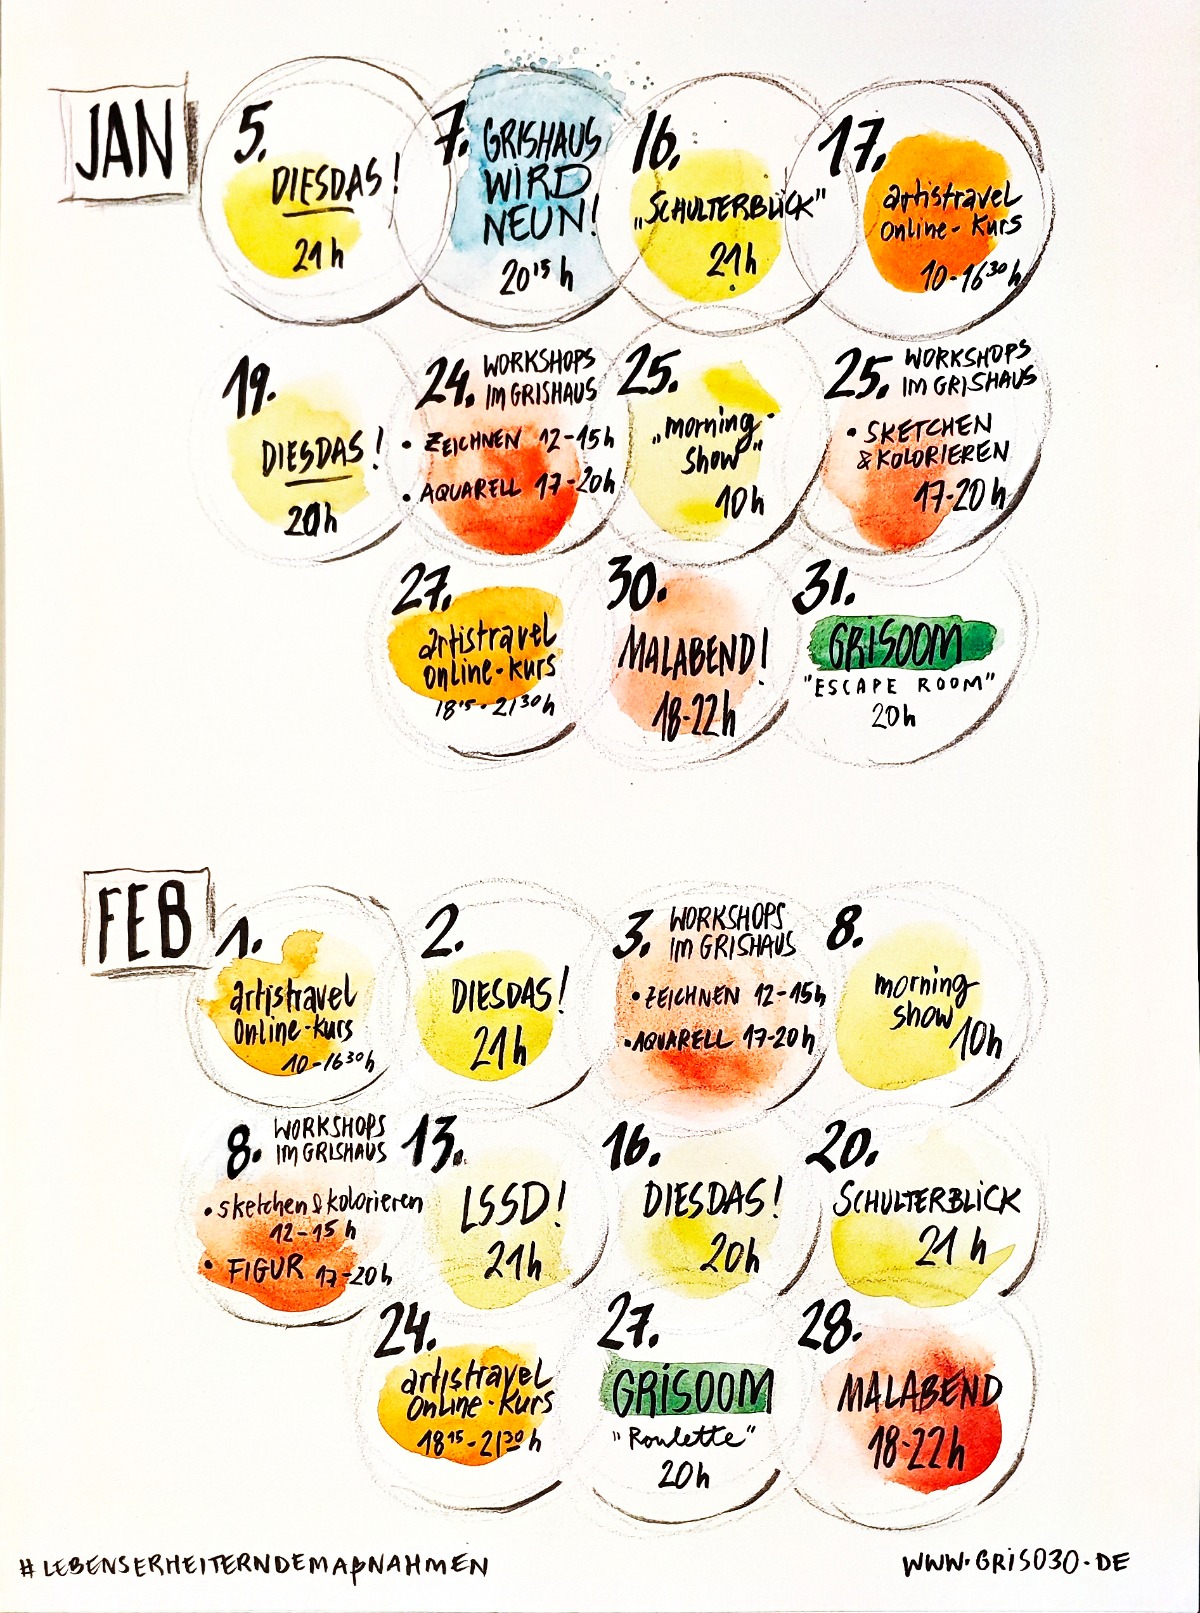 JAN
5.
DIESDAS!
21h
7. GRISHAUS
WIRD
NEUN!
20¹⁵ h
16.
„SCHULTERBLICK"
21h
17.
artistravel
online-Kurs
10-16³⁰ h
19.
DIESDAS!
20h
24. WORKSHOPS
IM GRISHAUS
• ZEICHNEN 12-15h
• AQUARELL 17-20h
25.
„morning-
show"
10h
25. WORKSHOPS
IM GRISHAUS
• SKETCHEN
& KOLORIEREN
17-20h
27.
artistravel
online-kurs
18¹⁵-21³⁰ h
30.
MALABEND!
18-22h
31.
GRISOOM
"ESCAPE ROOM"
20h
FEB
1.
artistravel
online-kurs
10-16³⁰ h
2.
DIESDAS!
21h
3. WORKSHOPS
IM GRISHAUS
• ZEICHNEN 12-15h
• AQUARELL 17-20h
8.
morning-
show
10h
8. WORKSHOPS
IM GRISHAUS
• sketchen & kolorieren
12-15 h
• FIGUR 17-20h
13.
LSSD!
21h
16.
DIESDAS!
20h
20.
SCHULTERBLICK
21 h
24.
artistravel
online-kurs
18¹⁵-21³⁰ h
27.
GRISOOM
"Roulette"
20h
28.
MALABEND
18-22h
#LEBENSERHEITERNDEMAßNAHMEN
WWW.GRIS030.DE